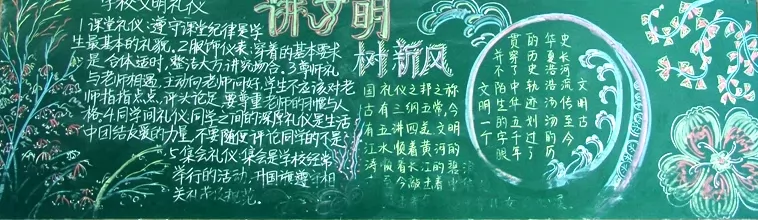 学校文明礼仪
1.课堂礼仪:遵守课堂纪律是学
生最基本的礼貌。2.服饰仪表:穿着的基本要求
是合体适时,整洁大方,讲究场合。3.尊师礼
与老师相遇,主动向老师问好,学生不应该对老
师指指点点,评头论足,要尊重老师的习惯与人
格。4.同学间礼仪:同学之间的深厚礼仪是生活
中团结友爱的力量,不要随便评论同学的不是。
5.集会礼仪:集会是学校经常
举行的活动,升国旗
讲文明
树新风
国礼仪之邦之称
古有三纲五常,今
有五讲四美,文明
江水,顺着黄河的
涛,顺着长江的碧
至今
文明古
史长河流传至今
华夏浩浩汤汤的
的历史轨迹划过了
贯穿了中华五千年
并不陌生的字眼
文明一个